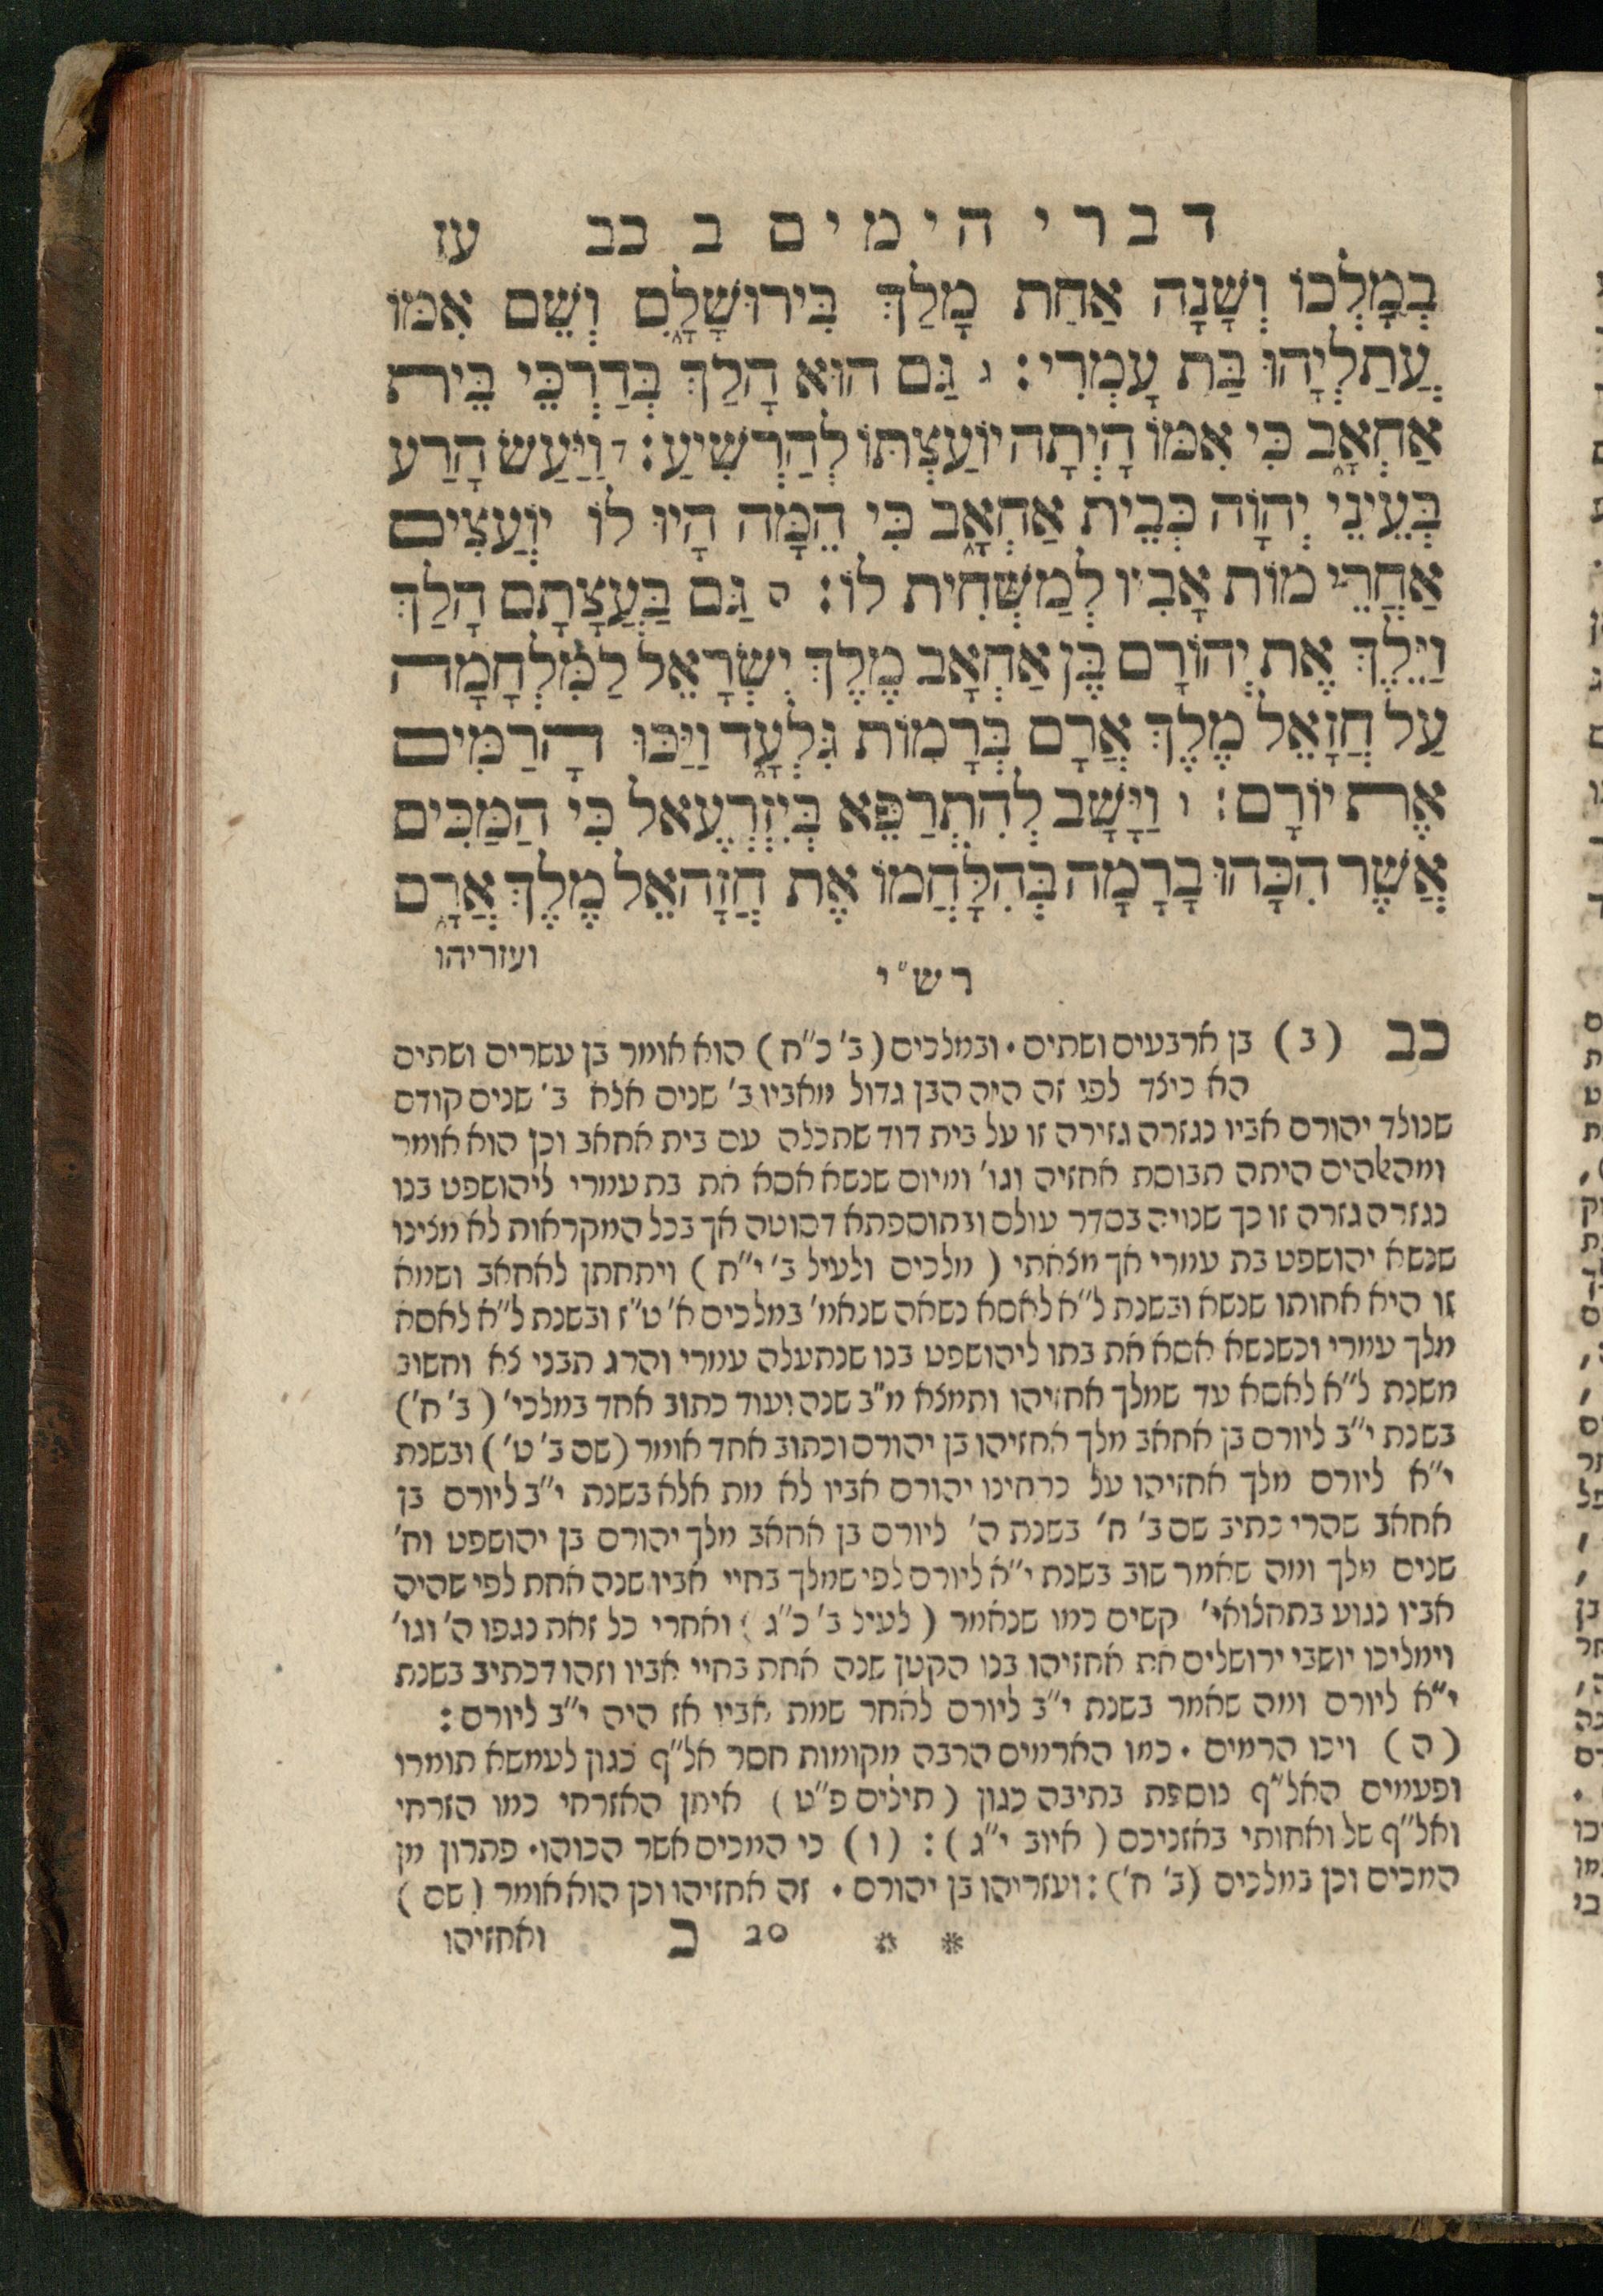 דברי הימים ב כב עז
בְּמָלְכוֹ וְשָׁנָה אַחַת מָלַךְ בִּירוּשָׁלָ͏ִם וְשֵׁם אִמּוֹ
עֲתַלְיָהוּ בַּת עָמְרִי׃ ג גַּם הוּא הָלַךְ בְּדַרְכֵי בֵּית
אַחְאָב כִּי אִמּוֹ הָיְתָה יוֹעַצְתּוֹ לְהַרְשִׁיעַ׃ ד וַיַּעַשׂ הָרַע
בְּעֵינֵי יְהוָֹה כְּבֵית אַחְאָב כִּי הֵמָּה הָיוּ לוֹ יוֹעֲצִים
אַחֲרֵי מוֹת אָבִיו לְמַשְׁחִית לוֹ׃ ה גַּם בַּעֲצָתָם הָלַךְ
וַיֵּלֶךְ אֶת יְהוֹרָם בֶּן אַחְאָב מֶלֶךְ יִשְׂרָאֵל לַמִּלְחָמָה
עַל חֲזָאֵל מֶלֶךְ אֲרָם בְּרָמוֹת גִּלְעָד וַיַּכּוּ הָרַמִּים
אֶת יוֹרָם׃ ו וַיָּשָׁב לְהִתְרַפֵּא בְיִזְרְעֶאל כִּי הַמַּכִּים
אֲשֶׁר הִכָּהוּ בָרָמָה בְּהִלָּחֲמוֹ אֶת חֲזָהאֵל מֶלֶךְ אֲרָם
ועזריהו
רש״י
כב (ב) בן ארבעים ושתים · ובמלכים (ב׳ כ״ח) הוא אומר בן עשרים ושתים
הא כיצד לפי זה היה הבן גדול מאביו ב׳ שנים אלא ב׳ שנים קודם
שנולד יהורם אביו נגזרה גזירה זו על בית דוד שתכלה עם בית אחאב וכן הוא אומר
ומהאלהים היתה תבוסת אחזיה וגו׳ ומיום שנשא אסא את בת עמרי ליהושפט בנו
נגזרה גזרה זו כך שנויה בסדר עולם ובתוספתא דסוטה אך בכל המקראות לא מצינו
שנשא יהושפט בת עמרי אך מצאתי (מלכים ולעיל ב׳ י״ח) ויתחתן לאחאב ושמא
זו היא אחותו שנשא ובשנת ל״א לאסא נשאה שנאמ׳ במלכים א׳ ט״ז ובשנת ל״א לאסא
מלך עמרי וכשנשא אסא את בתו ליהושפט בנו שנתעלה עמרי והרג תבני צא וחשוב
משנת ל״א לאסא עד שמלך אחזיהו ותמצא מ״ב שנה ועוד כתוב אחד במלכי׳ (ב׳ ח׳)
בשנת י״ב ליורם בן אחאב מלך אחזיהו בן יהורם וכתוב אחד אומר (שם ב׳ ט׳) ובשנת
י״א ליורם מלך אחזיהו על כרחינו יהורם אביו לא מת אלא בשנת י״ב ליורם בן
אחאב שהרי כתיב שם ב׳ ח׳ בשנת ה׳ ליורם בן אחאב מלך יהורם בן יהושפט וח׳
שנים מלך ומה שאמר שוב בשנת י״א ליורם לפי שמלך בחיי אביו שנה אחת לפי שהיה
אביו נגוע בתהלואי׳ קשים כמו שנאמר (לעיל ב׳ כ״ג) ואחרי כל זאת נגפו ה׳ וגו׳
וימליכו יושבי ירושלים את אחזיהו בנו הקטן שנה אחת בחיי אביו וזהו דכתיב בשנת
י״א ליורם ומה שאמר בשנת י״ב ליורם לאחר שמת אביו אז היה י״ב ליורם׃
(ה) ויכו הרמים · כמו הארמים הרבה מקומות חסר אל״ף כגון לעמשא תומרו
ופעמים האל״ף נוספת בתיבה כגון (תילים פ״ט) איתן האזרחי כמו הזרחי
ואל״ף של ואחותי באזניכם (איוב י״ג)׃ (ו) כי המכים אשר הכוהו · פתרון מן
המכים וכן במלכים (ב׳ ח׳)׃ ועזריהו בן יהורם · זה אחזיהו וכן הוא אומר (שם)
* * 20 כ ואחזיהו